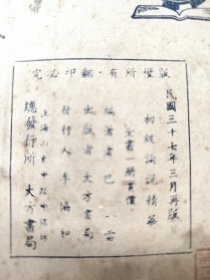 版權所有·翻印必究
民國三十七年三月再版
初級論說精華
全書一冊實價
編著者 巴
出版者 大方書局
發行人 李協和
上海山東中路中保坊
總發行所 大方書局